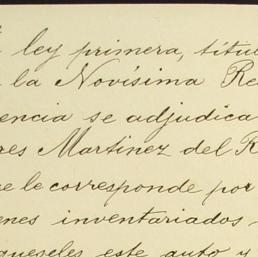 ley primera, títu
la Novísima Re
encia se adjudica
res Martinez del R
e le corresponde por
enes inventariados
queseles este auto y